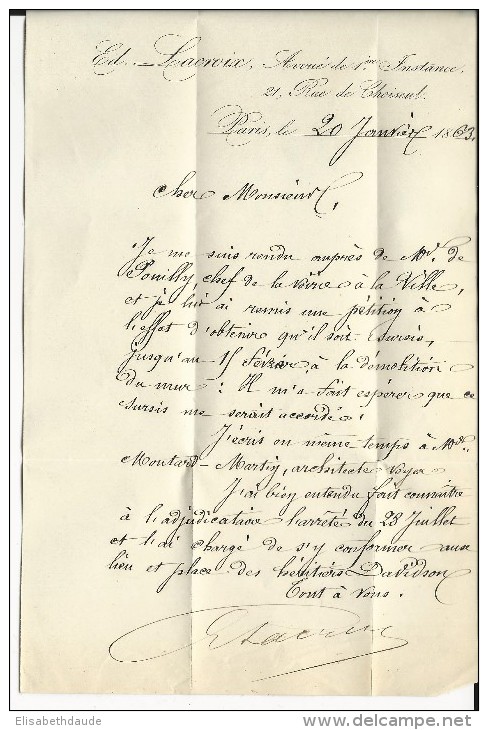 Ed. Lacroix, Avoué de 1re Instance,
21, Rue de Choiseul.
Paris, le 20 Janvier 1863.
Cher Monsieur,
Je me suis rendu auprès de Mr. de
Pouilly, chef de la voirie à la Ville,
et je lui ai remis une pétition à
l'effet d'obtenir qu'il soit sursis,
jusqu'au 15 février à la démolition
du mur : Il m'a fait espérer que ce
sursis me serait accordé.
J'écris en même temps à Mr.
Moutard-Martin, architecte voyer
J'ai bien entendu fait connaitre
à l'adjudicataire l'arrêté du 28 Juillet
et l'ai chargé de s'y conformer aux
lieu et place des héritiers Davidson
Tout à vous.
ELacroix
Elisabethdaude
http://www.delcampe.net